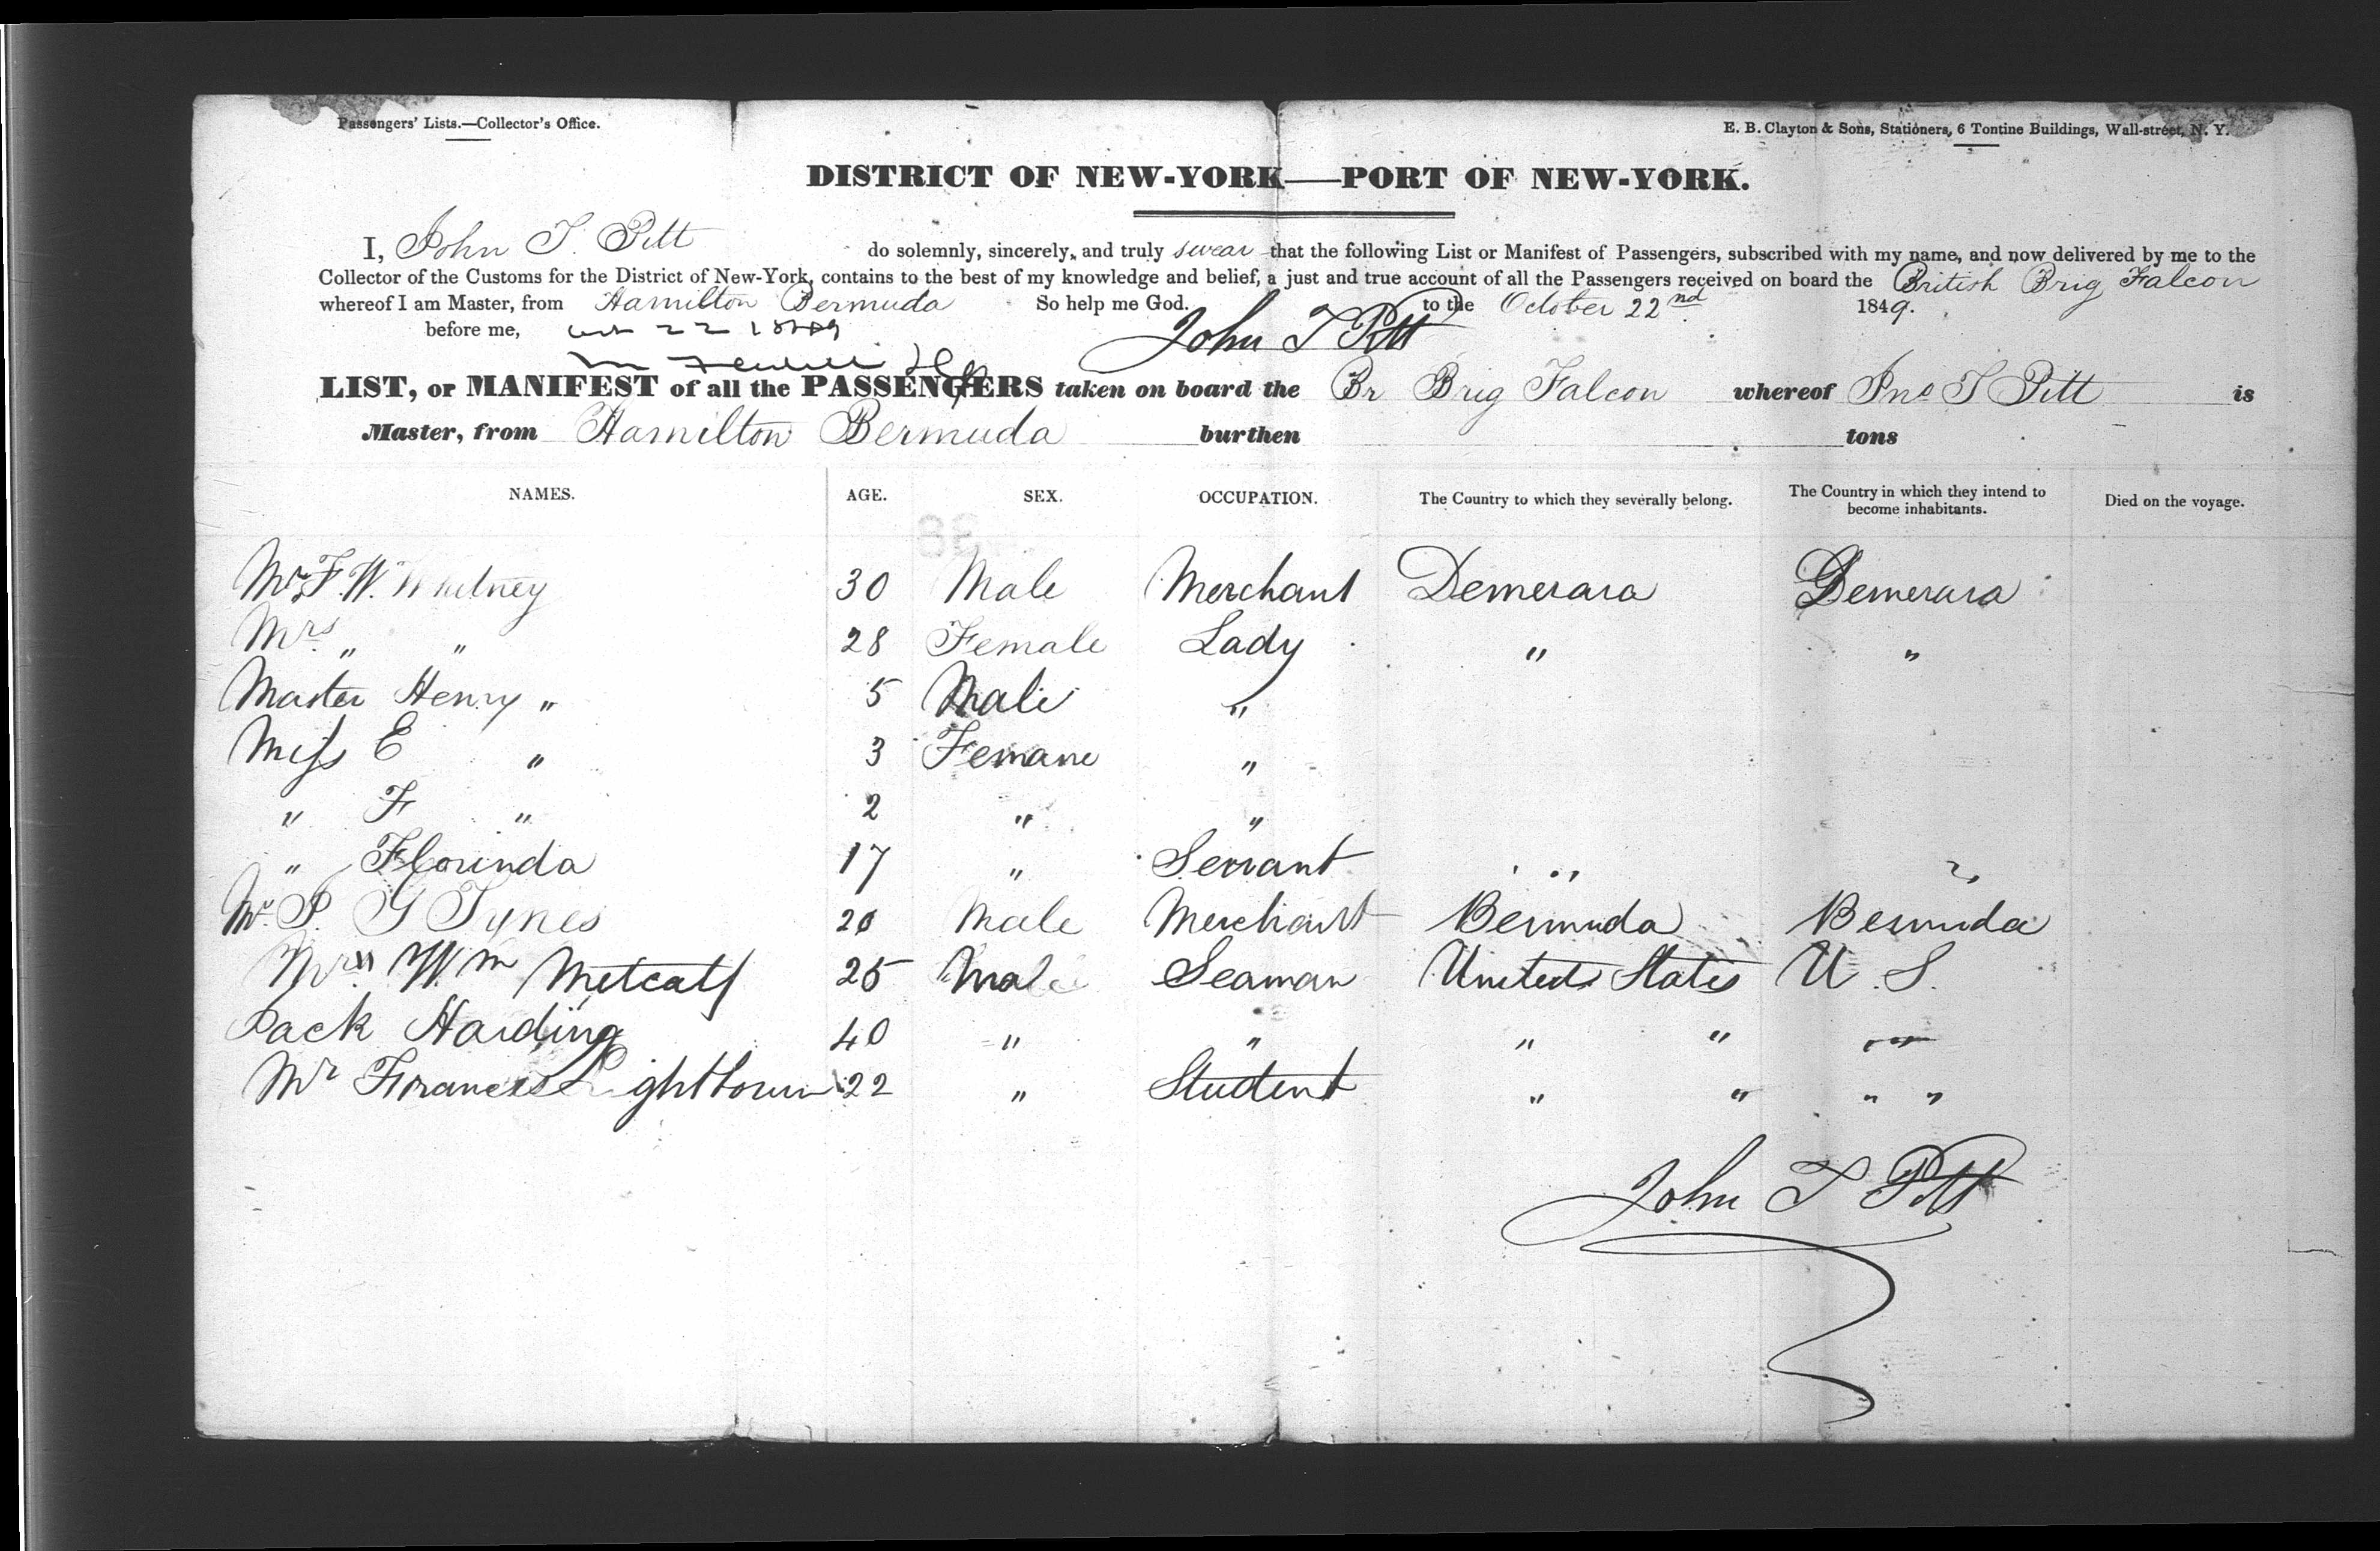 Passengers' Lists.—Collector's Office.
E. B. Clayton & Sons, Stationers, 6 Tontine Buildings, Wall-street, N. Y.
DISTRICT OF NEW-YORK—PORT OF NEW-YORK.
I, John T. Pitt do solemnly, sincerely, and truly swear that the following List or Manifest of Passengers, subscribed with my name, and now delivered by me to the
Collector of the Customs for the District of New-York, contains to the best of my knowledge and belief, a just and true account of all the Passengers received on board the British Brig Falcon
whereof I am Master, from Hamilton Bermuda So help me God. to the October 22nd 1849.
before me, 22 1849 John T Pitt
LIST, or MANIFEST of all the PASSENGERS taken on board the Br Brig Falcon whereof Jno T Pitt is
Master, from Hamilton Bermuda burthen tons
NAMES. AGE. SEX. OCCUPATION. The Country to which they severally belong. The Country in which they intend to become inhabitants. Died on the voyage.
Mr F. W. Whitney 30 Male Merchant Demerara Demerara
Mrs " " 28 Female Lady " "
Master Henry " 5 Male "
Miss E " 3 Femane "
" F " 2 " "
" Florinda 17 " Servant " "
Mr. P. G Tynes 20 Male Merchant Bermuda Bermuda
Wm Metcalf 25 Male Seaman United States U. S.
Jack Harding 40 " " " " "
Mr Francis Lightbourn 22 " Student " " " "
John T Pitt